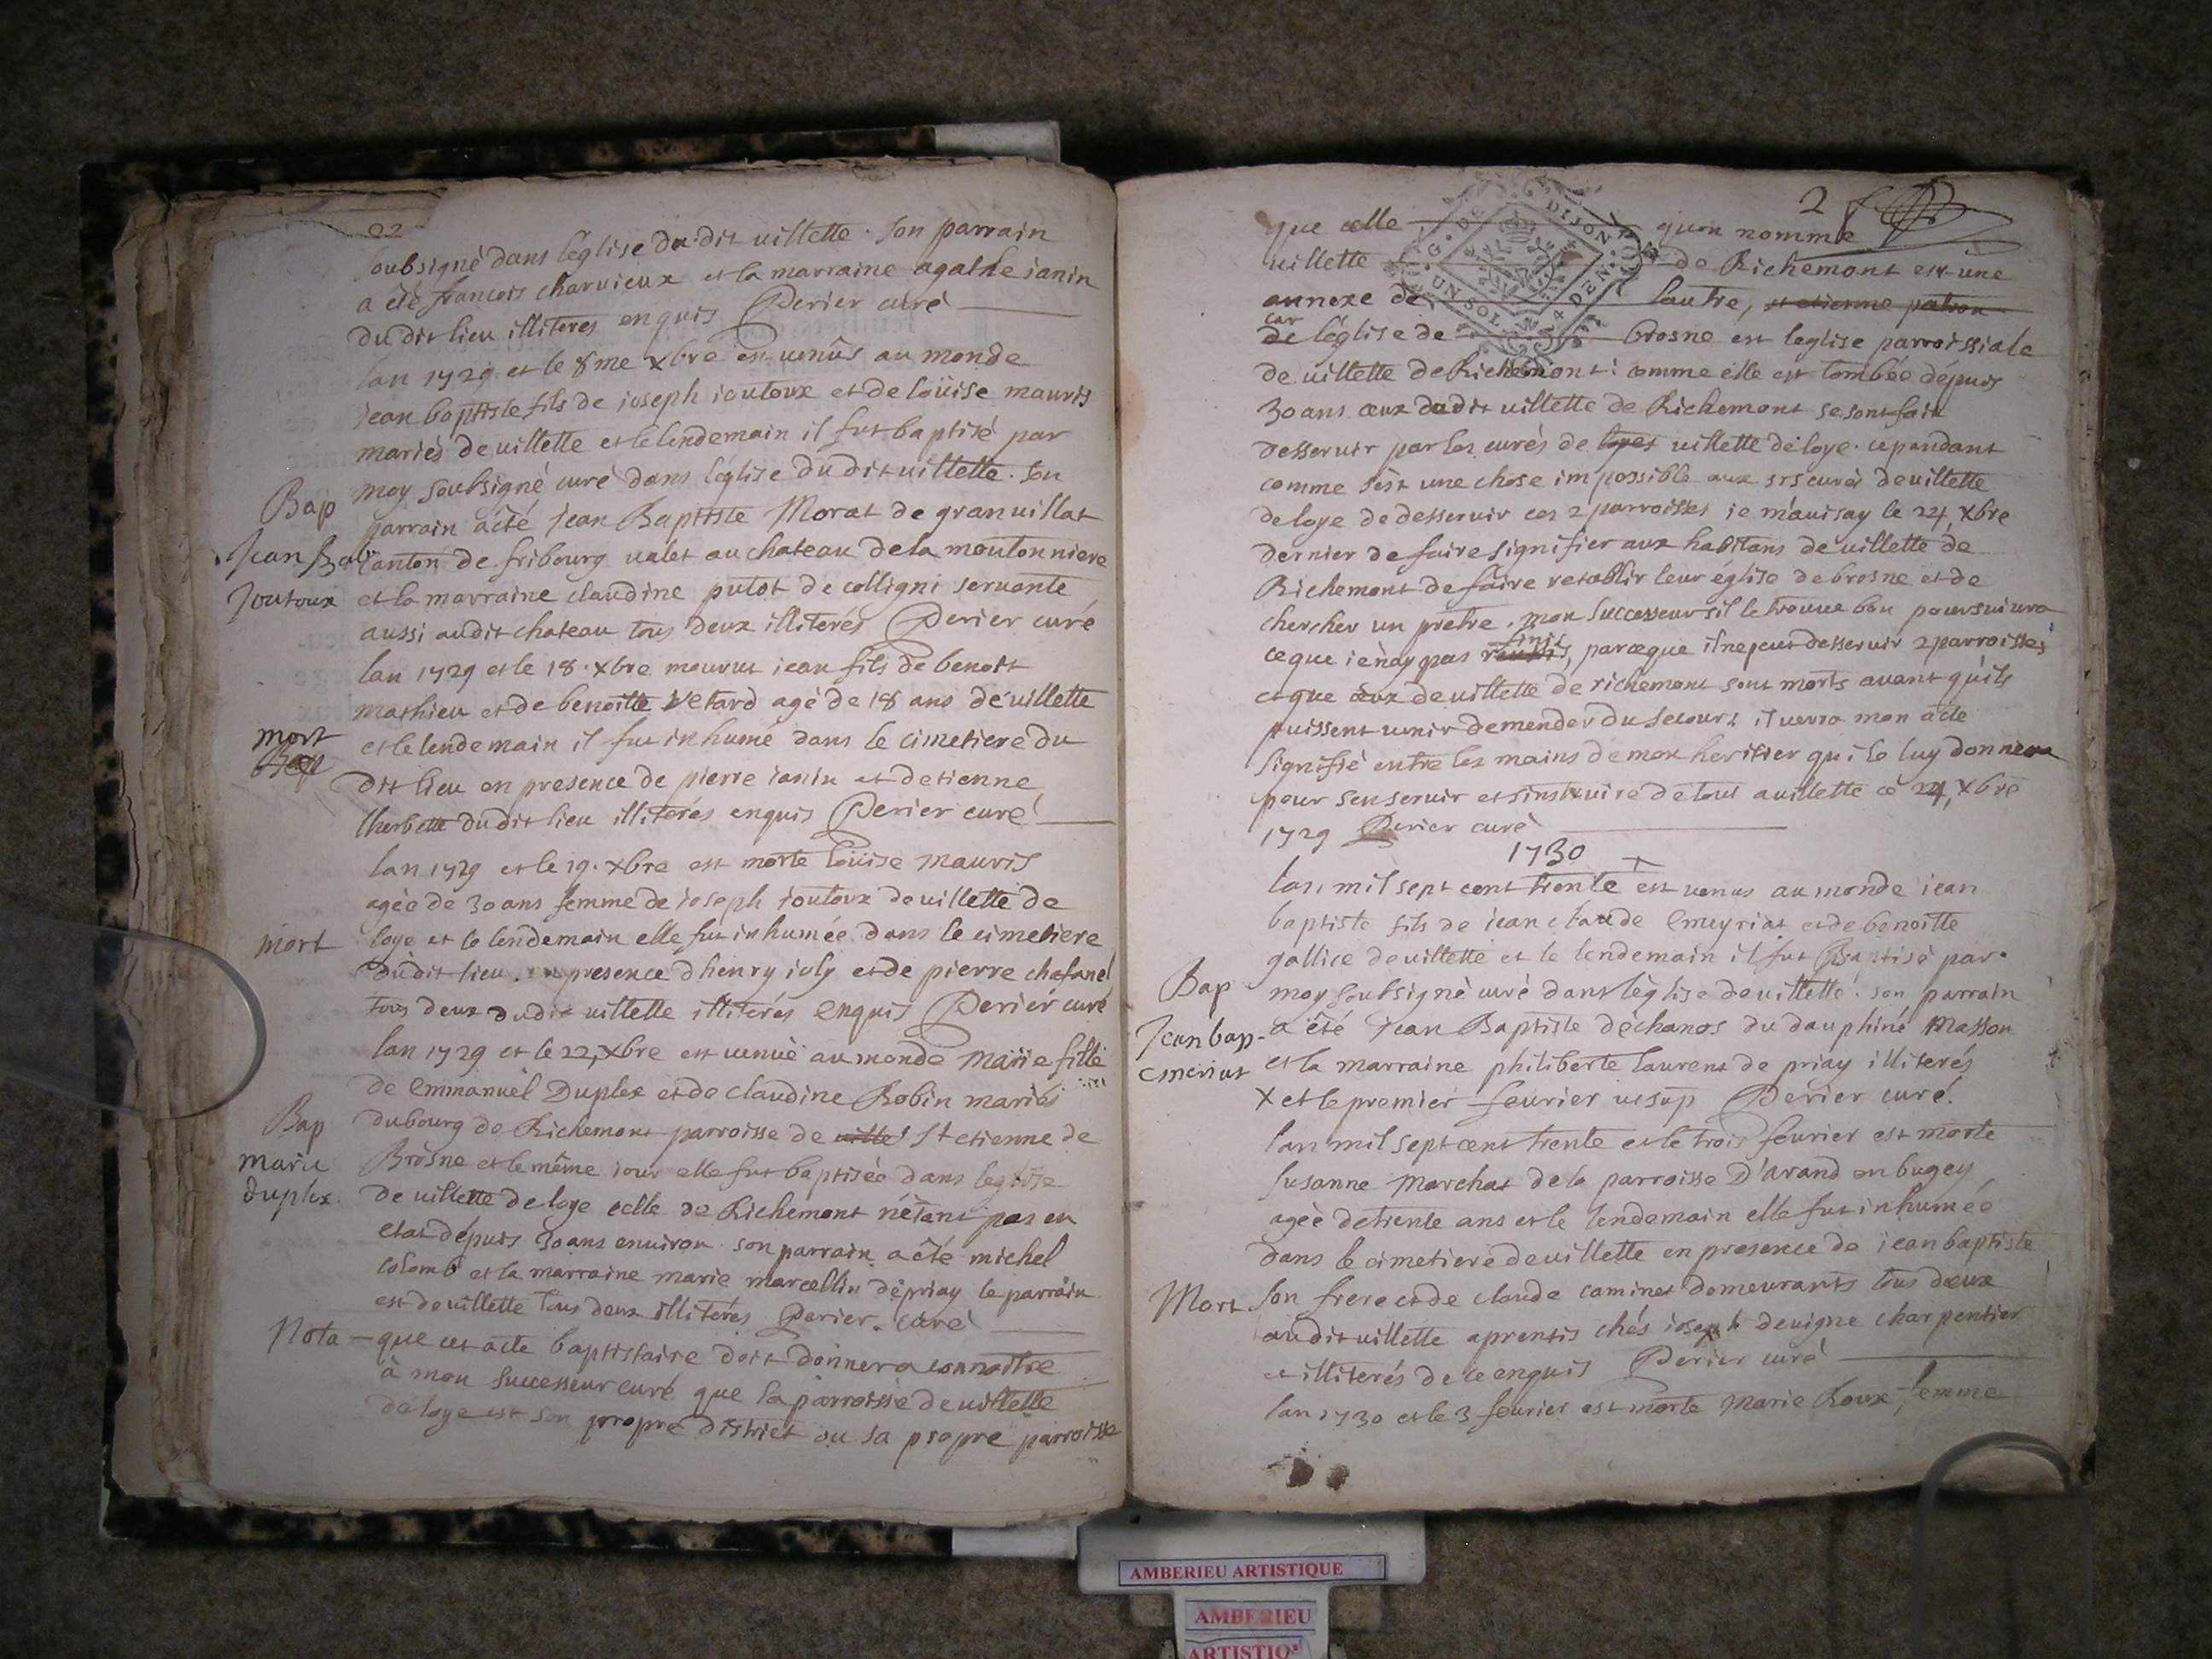 soubsigné dans léglise du dit uillette. son parrain
a été francois charuieux et la marraine agathe ianin
du dit lieu illiteres enquis Perier curé
lan 1729 et le 8me xbre est uenûs au monde
jean baptiste fils de ioseph ioutoux et de loüise mauris
mariés de uillette et le lendemain il fut baptisé par
Bap moy soubsigné curé dans léglise du dit uillette. son
parrain a été jean Baptiste Morat de granuillat
Jean Bap canton de fribourg ualet au chateau de la moutonniere
Joutoux et la marraine claudine putot de colligni seruante
aussi au dit chateau tous deux illiterés Perier curé
lan 1729 et le 18. xbre mourut iean fils de benoit
mathieu et de benoitte Vetard agé de 18 ans de uillette
mort et le lendemain il fut inhume dans le cimetiere du
Bap dit lieu en presence de pierre ianin et detienne
lherbette du dit lieu illiterés enquis Perier curé
lan 1729 et le 19. xbre est morte loüise mauris
agée de 30 ans femme de ioseph ioutoux de uillette de
mort loye et le lendemain elle fut inhumée dans le cimetiere
du dit lieu. en presence dhenry ioly et de pierre chafanel
tous deux du dit uillette illiterés enquis Perier curé
lan 1729 et le 22, xbre est uenüe au monde Marie fille
de emmanuel Duplex et de claudine Robin mariés
Bap du bourg de Richemont parroisse de uille St etienne de
marie Brosne et le même iour elle fut baptisée dans leglise
duplex. de uillette de loye celle de Richemont n'étant pas en
etat dépuis 30 ans enuiron. son parrain a été michel
colomb et la marraine marie marcellin de priay le parrain
est de uillette tous deux illiterés Perier. curé
Nota — que cet acte baptistaire doit donner a connaitre
à mon successeur curé que la parroisse de uillette
de loye est son propre district ou sa propre parroisse
2
que celle quon nomme
G. DE DIJON
UN SOL 4 DEN.
uillette de Richemont est une
annexe de lautre, et etienne patron
car
de léglise de brosne est leglise parroissiale
de uillette de Richemont: comme elle est tombée dépuis
30 ans ceux du dit uillette de Richemont se sont fait
desseruir par les curés de loyes uillette de loye. cependant
comme sest une chose impossible aux srs curés de uillette
de loye de desseruir ces 2 parroisses ie m'auisay le 24, xbre
dernier de faire signifier aux habitans de uillette de
Richemont de faire retablir leur église de brosne et de
chercher un pretre. mon successeur sil le trouue bon poursuiura
finis
ce que ie nay pas reussis, parceque il ne peut desseruir 2 parroisses
et que ceux de uillette de richemont sont morts auant quils
puissent uenir demender du secours il uerra mon acte
signifié entre les mains de mon heritier qui le luy donnera
pour sen seruir et sinstruire de tout a uillette ce 24, xbre
1729 Perier curé
1730
lan mil sept cent trente + est uenus au monde iean
baptiste fils de iean claude emeyriat et de benoitte
gallice de uillette et le lendemain il fut Baptisé par
Bap moy soubsigné curé dans léglise de uillette. son parrain
Jean bap- a été jean Baptiste dechanos du dauphiné Masson
emeriat et la marraine philiberte laurent de priay illiterés
X et le premier feurier ut sup Perier curé.
lan mil sept cent trente et le trois feurier est morte
susanne Marchat de la parroisse D'arand en bugey
agée de trente ans et le lendemain elle fut inhumée
dans le cimetiere de uillette en presence de iean baptiste
Mort son frere et de claude caminet demeurants tous deux
au dit uillette aprentis chés ioseph deuigne charpentier
et illiterés de ce enquis Perier curé
lan 1730 et le 3 feurier est morte Marie Roux, femme
AMBERIEU ARTISTIQUE
AMBERIEU
ARTISTIQ